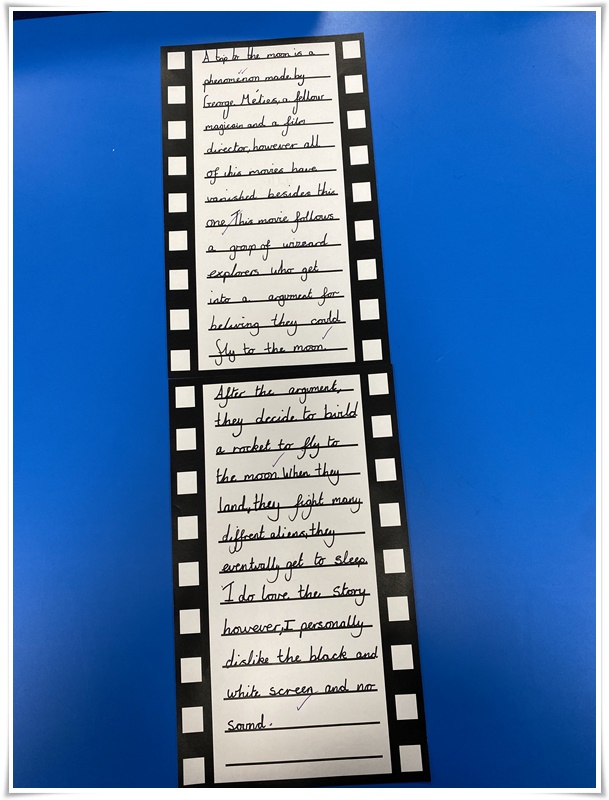 A trip to the moon is a
phenomenon made by
George Méties, a fellow
magicain and a film
director, however all
of this movies have
vanished besides this
one. This movie follows
a group of wizeard
explorers who get
into a argument for
beliving they could
fly to the moon.
After the argument,
they decide to build
a rocket to fly to
the moon. When they
land, they fight many
diffrent aliens, they
eventually get to sleep.
I do love the story
however, I personally
dislike the black and
white screen and no
sound.